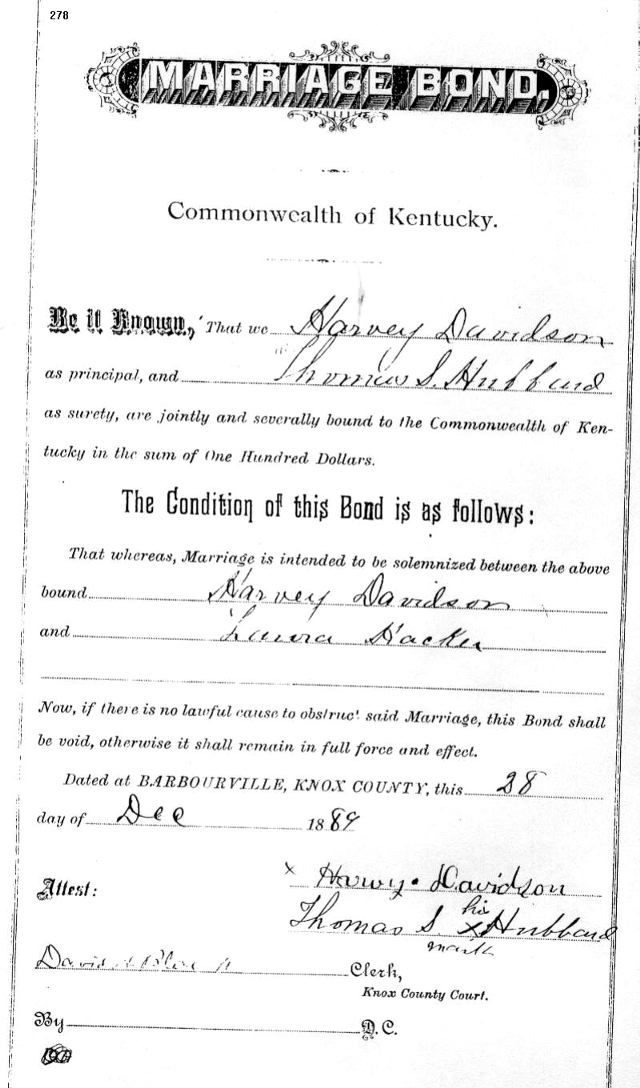 278
MARRIAGE BOND.
Commonwealth of Kentucky.
Be it Known, That we Harvey Davidson
as principal, and Thomas S. Hubbard
as surety, are jointly and severally bound to the Commonwealth of Ken-
tucky in the sum of One Hundred Dollars.
The Condition of this Bond is as follows:
That whereas, Marriage is intended to be solemnized between the above
bound Harvey Davidson
and Laura Hacker
Now, if there is no lawful cause to obstruct said Marriage, this Bond shall
be void, otherwise it shall remain in full force and effect.
Dated at BARBOURVILLE, KNOX COUNTY, this 28
day of Dec 1889
x Harvy Davidson
Attest:
his
Thomas S x Hubbard
mark
David Clerk,
Knox County Court.
By D. C.